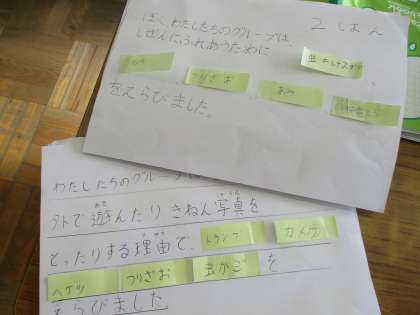 2 はん
ぼく、わたしたちのグループは、
しぜんにふれあうために
つりざお あみ
をえらびました。
わたしたちのグループは
外で遊んだり きねん写真を
とったりする理由で、トランプ カメラ
バケツ つりざお 虫かご を
えらびました